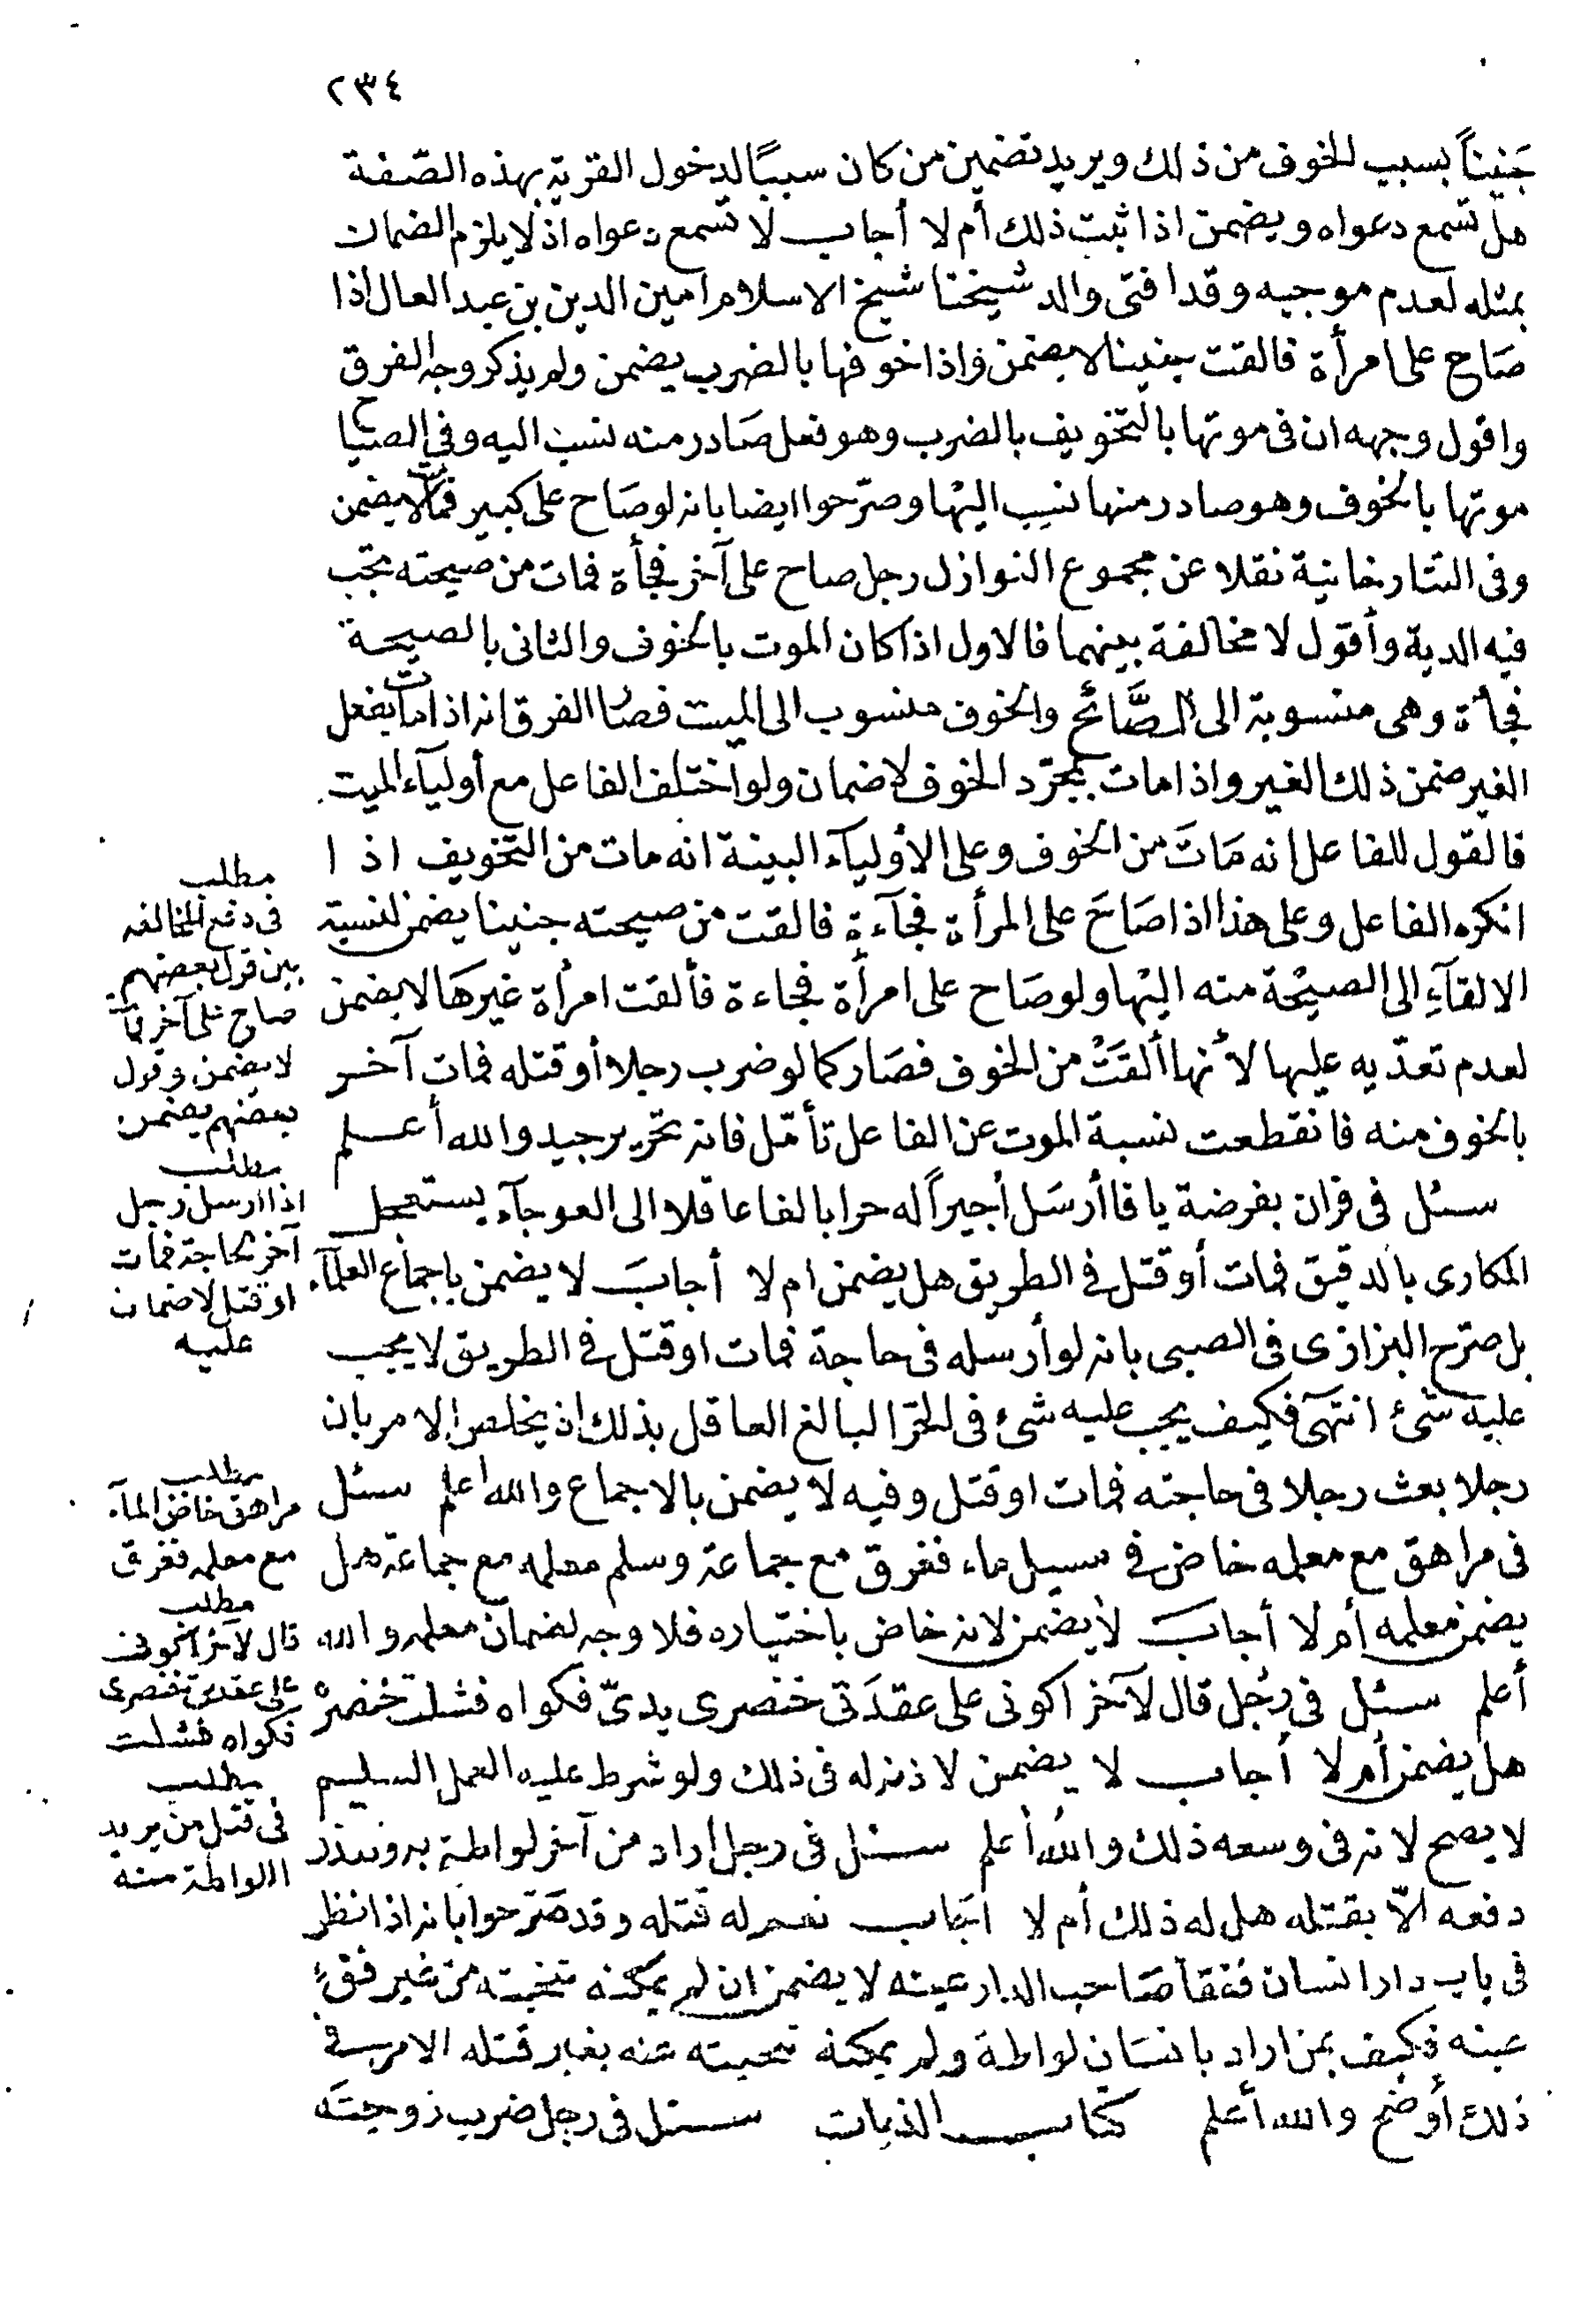 ٢٣٤
جَنيناً بسبب الخوف من ذلك ويريد تضمين من كان سببًا لدخول القرية بهذه الصّفة
هل تسمع دعواه ويضمن اذا ثبت ذلك أم لا أجاب لا تسمع دعواه اذ لا يلزم الضمان
بمثله لعدم موجبه وقد افتى والد شيخنا شيخ الاسلام امين الدين بن عبد العال اذا
صَاح على امرأة فالقت جنينا لا يضمن واذا خوفها بالضرب يضمن ولم يذكر وجه الفرق
واقول وجهه ان فى موتها بالتخويف بالضرب وهو فعل صَادر منه نسب اليه وفي الصياح
موتها بالخوف وهو صادر منها نسب اليْها وصرّحوا ايضا بانه لو صَاح على كبير فمات لا يضمن
وفى التتارخانية نقلا عن مجموع النوازل رجل صاح على آخر فجأة فمات من صيحته تجب
فيه الدية وأقول لا مخالفة بينهما فالاول اذا كان الموت بالخوف والثانى بالصيحة
فجأة وهى منسوبة الى الصَّائح والخوف منسوب الى الميت فصار الفرق انه اذا مات بفعل
الغير ضمن ذلك الغير واذا مات بمجرّد الخوف لا ضمان ولو اختلف الفاعل مع أوليآء الميت
فالقول للفاعل انه مَاتَ من الخوف وعلى الأوليآء البينة انه مات من التخويف اذا
انكره الفاعل وعلى هذا اذا صَاحَ على المرأة فجآءة فالقت من صيحته جنينا يضمن لنسبة
الالقآءِ الى الصيحْة منه اليْها ولو صَاح على امرأة فجاءة فألقت امرأة غيرهَا لا يضمن
لعدم تعدّيه عليها لأنها ألقَتْ من الخوف فصَار كما لو ضرب رجلا أو قتله فمات آخر
بالخوف منه فانقطعت نسبة الموت عن الفاعل تأمّل فانه تحرير جيد والله أعلم
سئل فى فران بفرضة يافا أرسَل أجيراً له حرا بالغا عاقلا الى العوجآء يستعجل
المكارى بالدقيق فمات أو قتل في الطريق هل يضمن ام لا أجابَ لا يضمن باجماع العلمآء
بل صرّح البزازى فى الصبى بانه لو أرسله فى حاجة فمات او قتل في الطريق لا يجب
عليه شئ انتهى فكيف يجب عليه شئ فى الحرّ البالغ العاقل بذلك اذ يخلص الامر بان
رجلا بعث رجلا فى حاجته فمات او قتل وفيه لا يضمن بالاجماع والله اعلم سئل
فى مراهق مع معلمه خاض في سيل ماء فغرق مع جماعة وسلم معلمه مع جماعة هل
يضمن معلمه أم لا أجابَ لا يضمن لانه خاض باختياره فلا وجه لضمان معلمه والله
أعلم سئل فى رجُل قال لآخر اكونى على عقدَتى خنصرى يدىّ فكواه فشلت خنصره
هل يضمن أم لا أجاب لا يضمن لاذنه له فى ذلك ولو شرط عليه العمل السليم
لا يصح لانه فى وسعه ذلك والله أعلم سئل فى رجل اراد من آخر لواطة به وتعذر
دفعه الّا بقتله هل له ذلك أم لا اجَاب نعم له قتله وقد صَرّحوا بانه اذا نظر
فى باب دار انسان ففقأ صَاحب الدار عينه لا يضمن ان لم يمكنه تنحيته من غير فقءِ
عينه فكيف بمن اراد بانسَان لواطة ولم يمكنه تنحيته عنه بغير قتله الامر في
ذلك أوضح والله أعلم كتاب الديات سئل فى رجل ضرب زوجته
مطلب
فى دفع المخالفه
بين قول بعضهم
صاح على آخر فمات
لا يضمن وقول
بعضهم يضمن
مطلب
اذا ارسل رجل
آخر لحاجة فمات
او قتل لا ضمان
عليه
مطلب
مراهق خاض المآء
مع معلمه فغرق
مطلب
قال لآخر اكونى
على عقدتى خنصرى
فكواه فشلت
مطلب
فى قتل من يريد
اللواطة منه